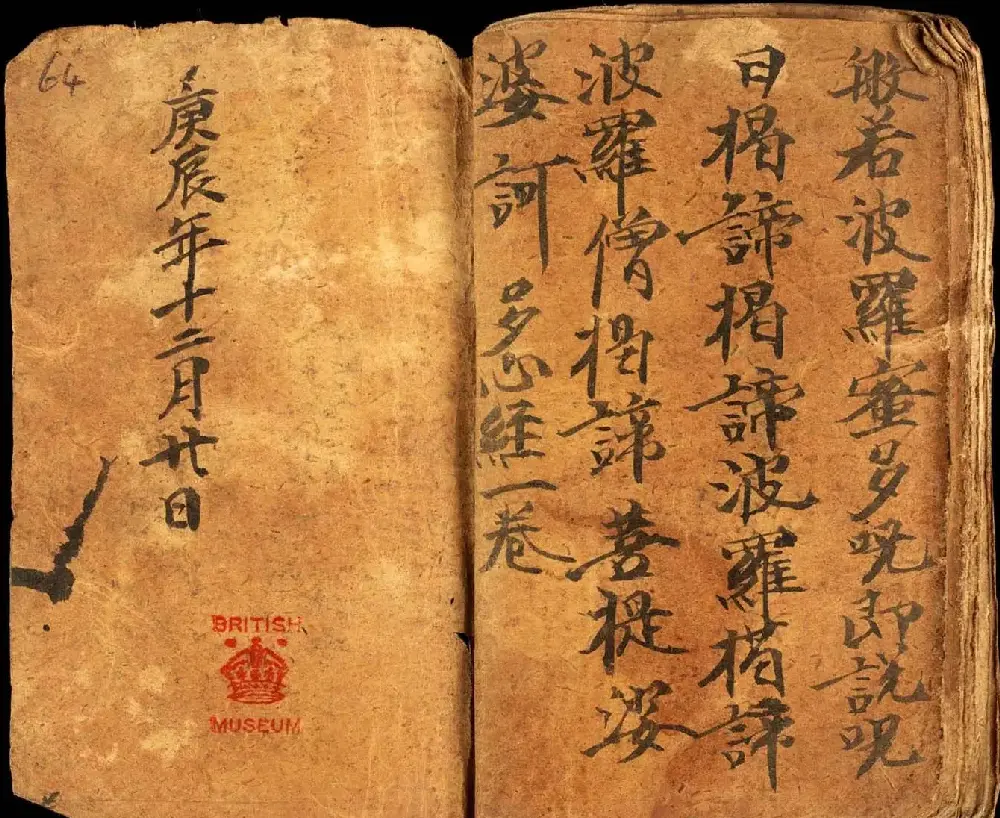 般若波羅蜜多呪即說呪
曰揭諦揭諦波羅揭諦
波羅僧揭諦菩提婆
婆訶 多心經一卷
庚辰年十二月廿日
64
BRITISH
MUSEUM